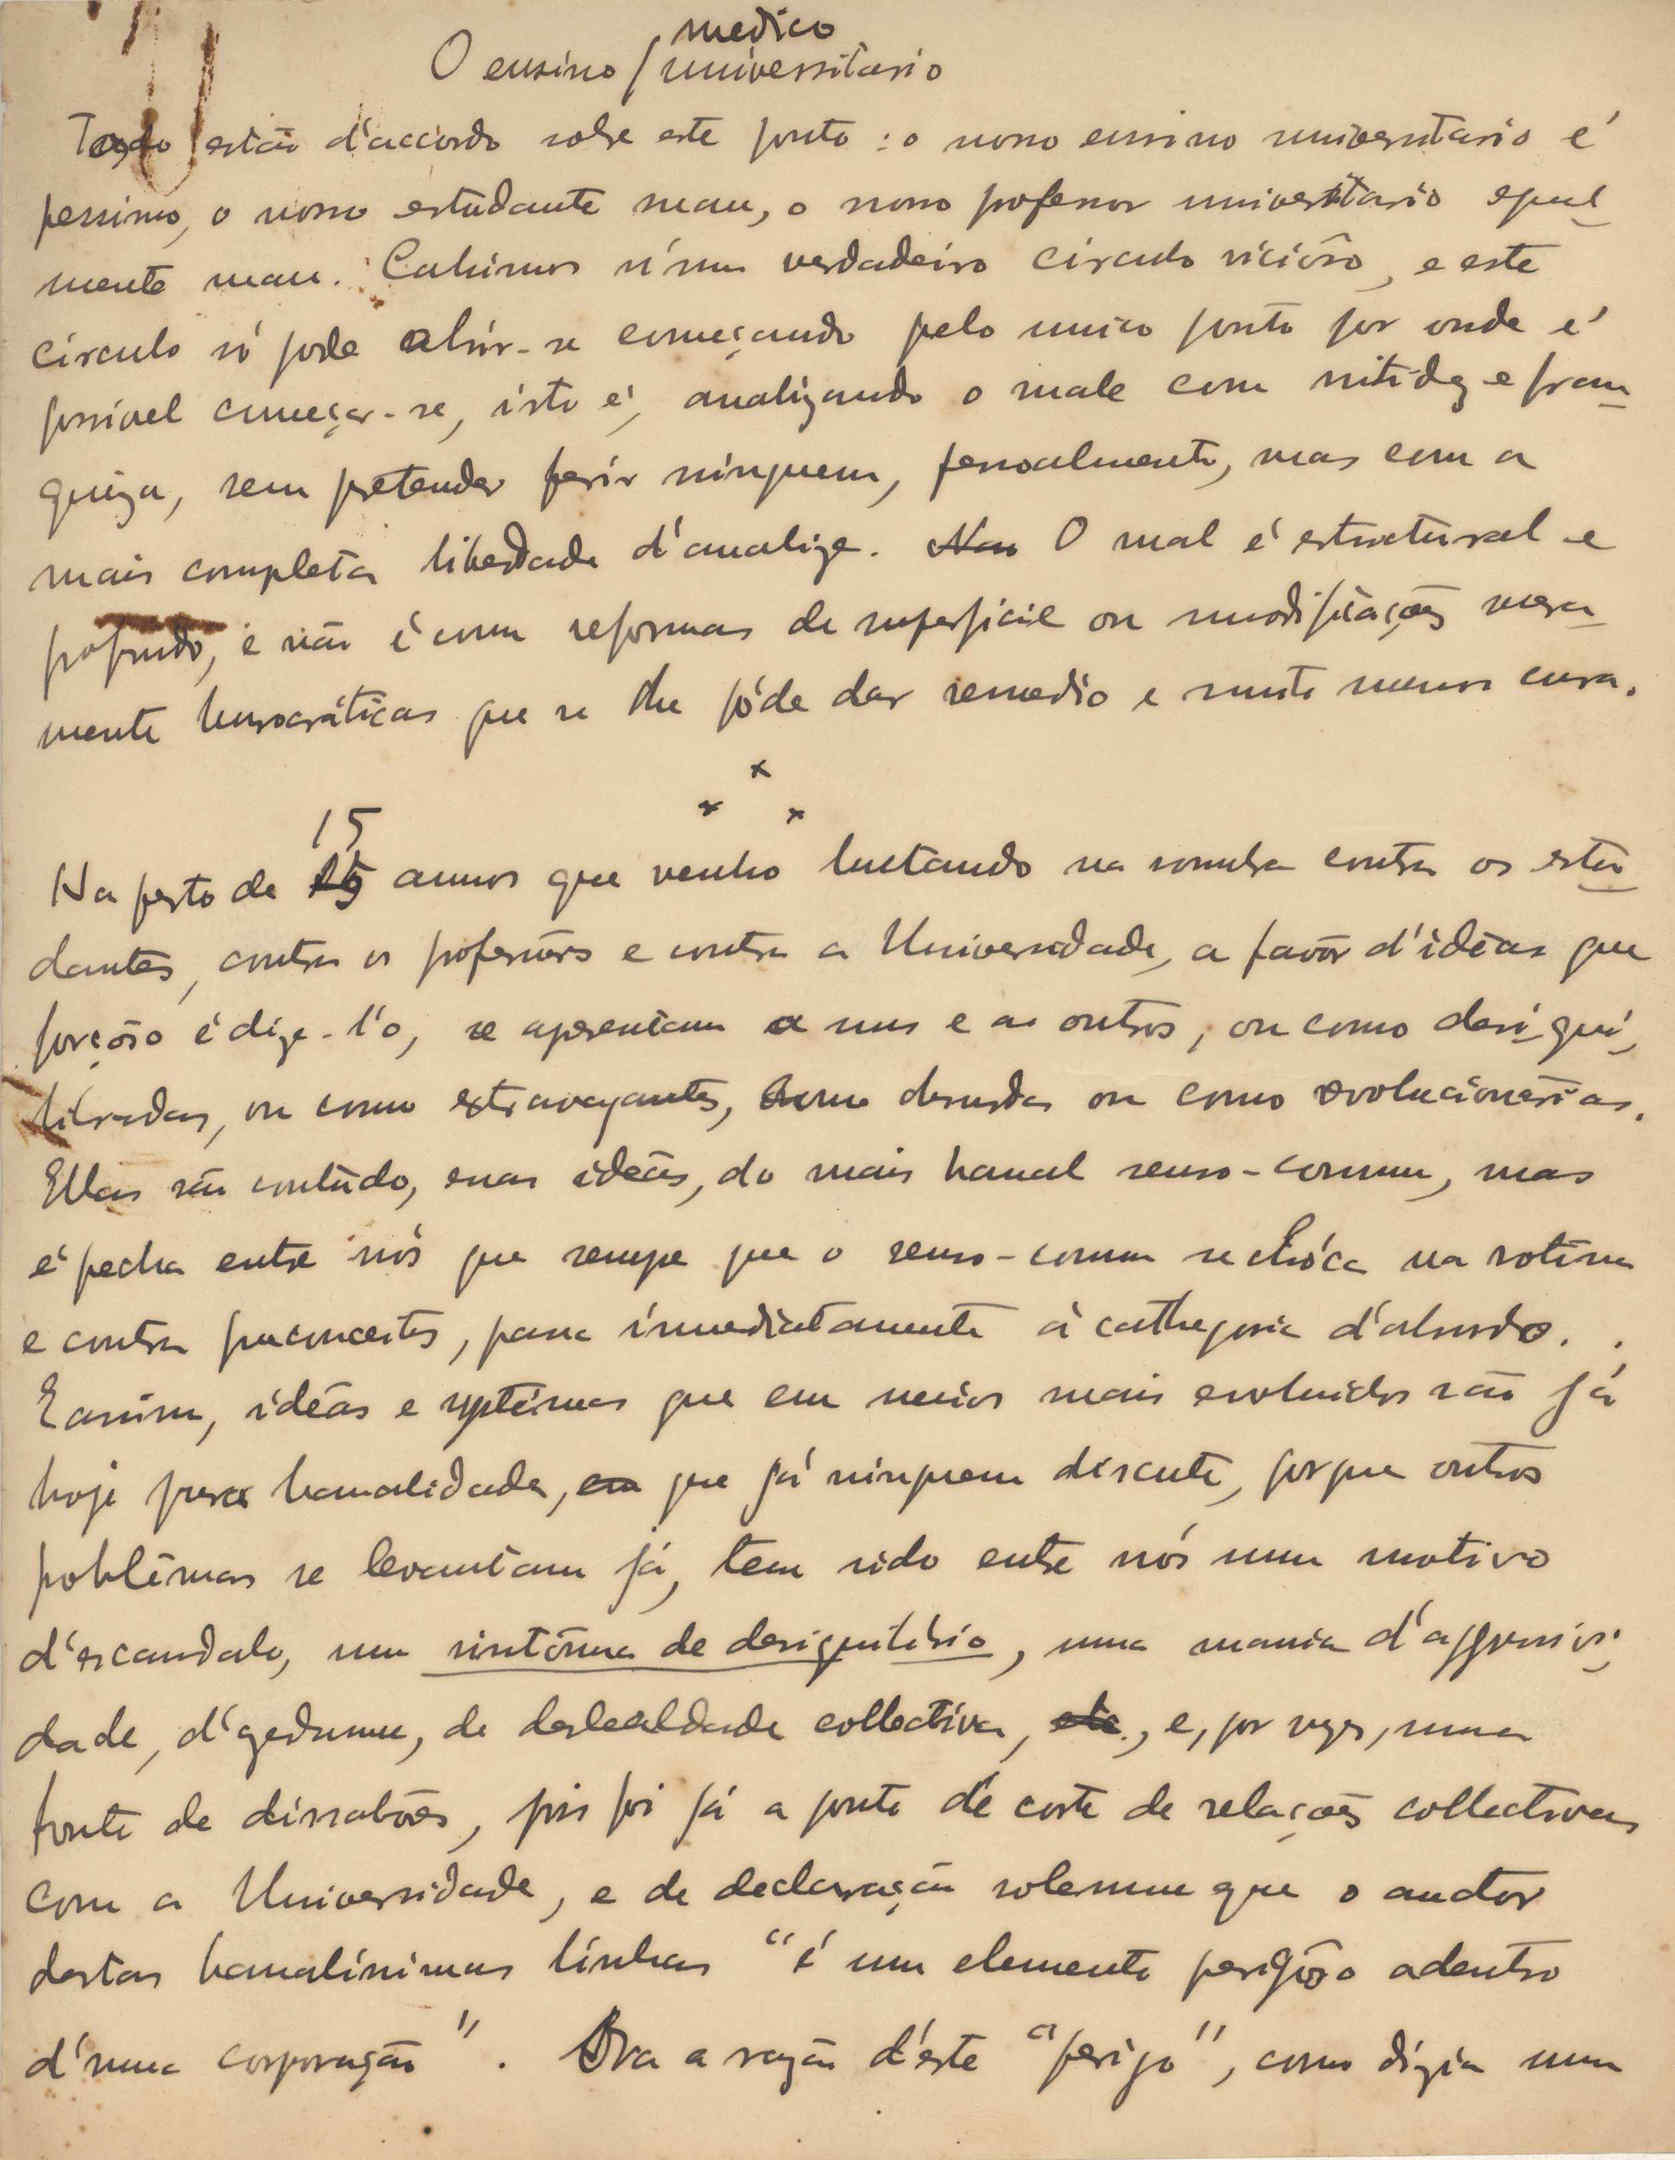 medico
O ensino / universitario
Todo estão d'accordo sobre este ponto : o nosso ensino universitario é
pessimo, o nosso estudante mau, o nosso professor universitario egual_
mente mau. Cahimos n'um verdadeiro circulo viciôso, e este
circulo só pode abrir-se começando pelo unico ponto por onde é
possivel começar-se, isto é, analizando o male com nitidez e fran_
queza, sem pretender ferir ninguem, pessoalmente, mas com a
mais completa liberdade d'analize. Nao O mal é estructural e
profundo, e não é com reformas de superficie ou modificações mera_
mente burocráticas que se lhe póde dar remedio e muito menos cura.
x
x x
15
Ha perto de annos que venho luctando na sombra contra os estu_
dantes, contra os professôres e contra a Universidade, a favôr d'idéas que
forçôso é dize-l'o, se apresentam a uns e a outros, ou como desi_qui_
libradas, ou como extravagantes, como absurdas ou como revolucionárias.
Ellas são contudo, essas idéas, do mais banal senso-comum, mas
é pecha entre nós que sempre que o senso-comum se chóca na rotina
e contra preconceitos, passa immediatamente á cathegoria d'absurdo. .
E assim, idéas e systémas que em meios mais evoluidos são já
hoje puras banalidades, em que já ninguem discute, porque outros
problêmas se levantam já, tem sido entre nós um motivo
d'escandalo, um sintôma de desiquilibrio, uma mania d'aggressivi_
dade, d'azedume, de deslealdade collectiva, etc., e, por vezes, uma
fonte de dissabôres, pois foi já a ponto de corte de relações collectivas
com a Universidade, e de declaração solemne que o auctor
destas banalissimas linhas "é um elemento perigôso adentro
d'uma corporação". Ora a razão d'éste "perigo", como dizia um